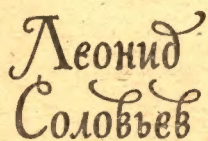 Леонид
Соловьев